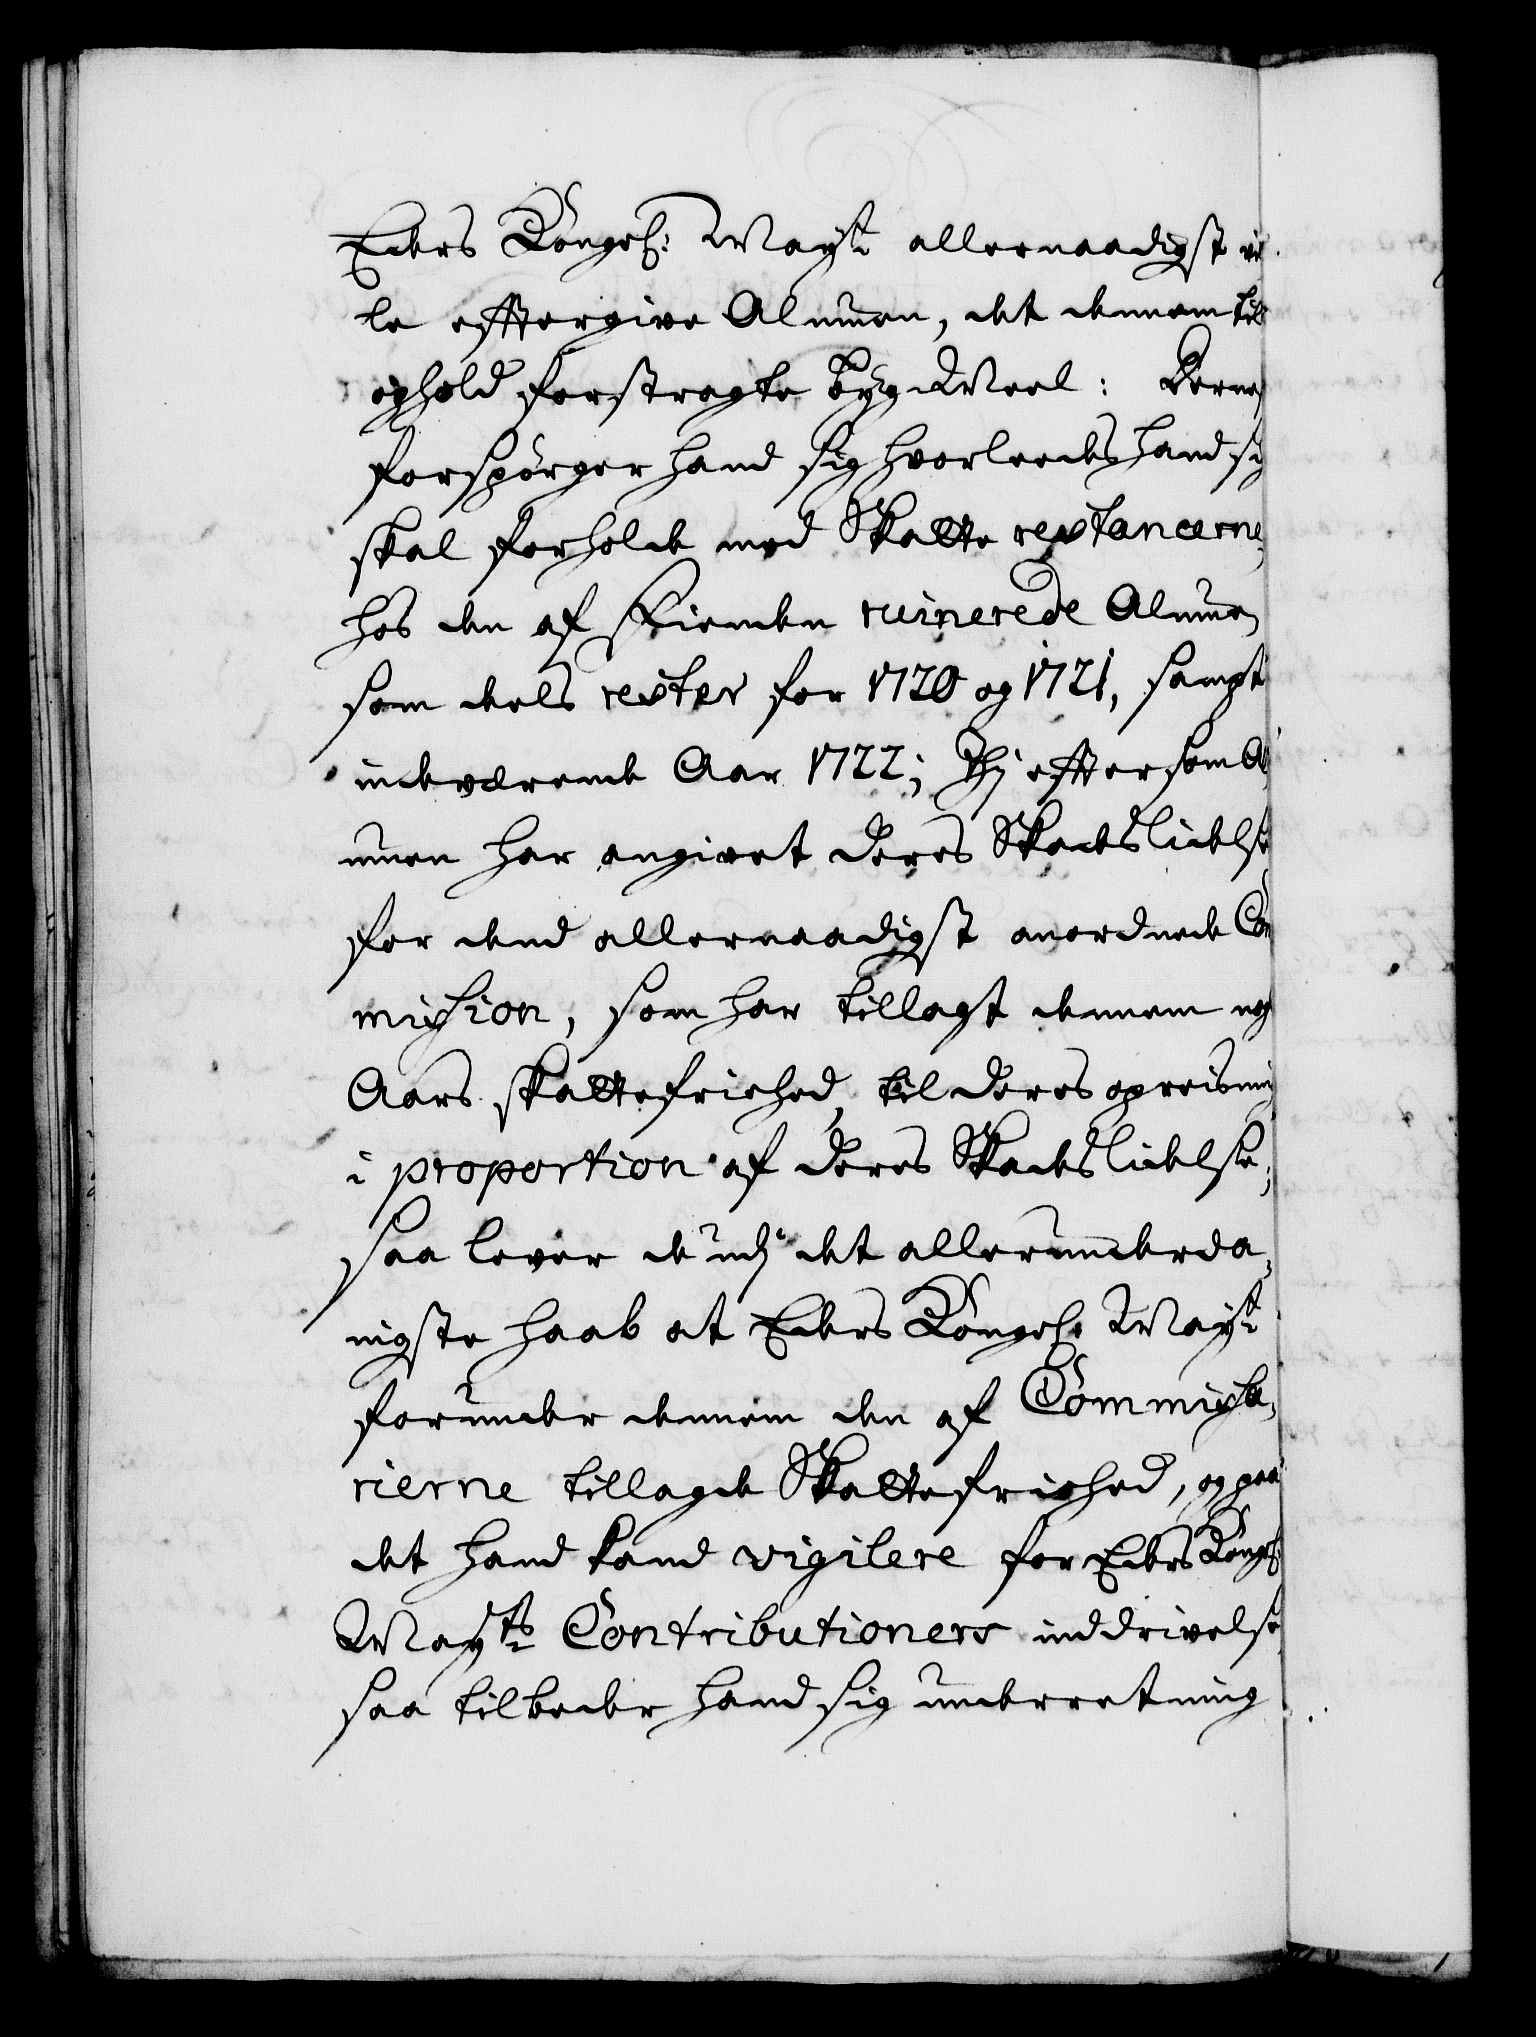 Eders Kongel: Mayst: allernaadigst vi
le efftergive Almuen, det dennem till
ophold forstragte byg Meel: Dernest
forspørger hand sig hvorleedes hand sig
skal forholde med Skatte restancerne,
hos den af Fienden ruinerede Almue,
som deels rester for 1720 og 1721, sampt
indeværende Aar 1722; Thj eftersom Al
muen har angivet deres Skadeslidelse
for dend allernaadigst anordnede Com
mission, som har tillagt dennem nogle
Aars skattefriehed, til deres opreisning
i proportion af deres Skadeslidelse,
saa lever de udj det allerunderda,
nigste haab at Eders Kongel: Mayst:
forunder dennem den af Commissa,
rierne tillagde Skattefriehed, og paa
det hand kand vigilere for Eders Kongel:
Maysts: Contributioners inddrivelse,
saa tilbeder hand sig underretning